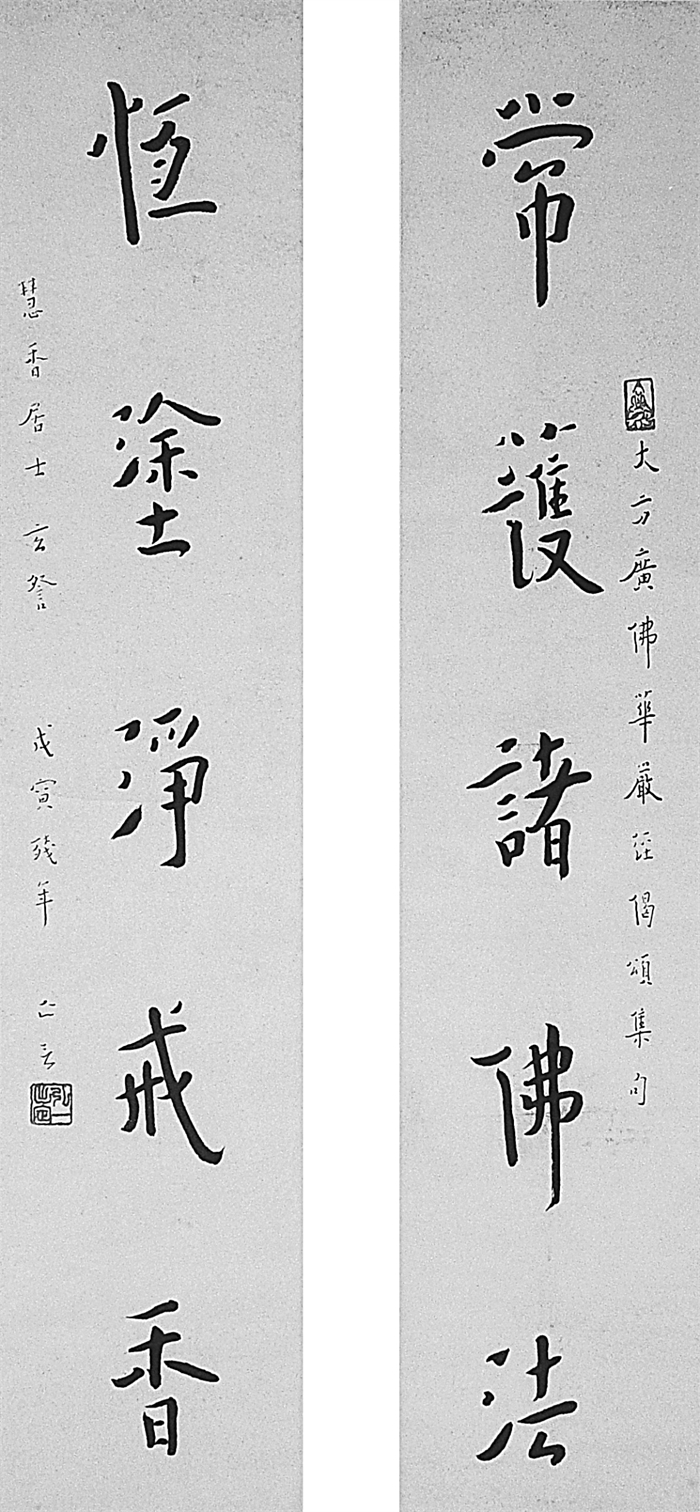 大方廣佛華嚴經偈頌集句
常護諸佛法
恆塗淨戒香
慧香居士 玄詧 戊寅殘年 亡言